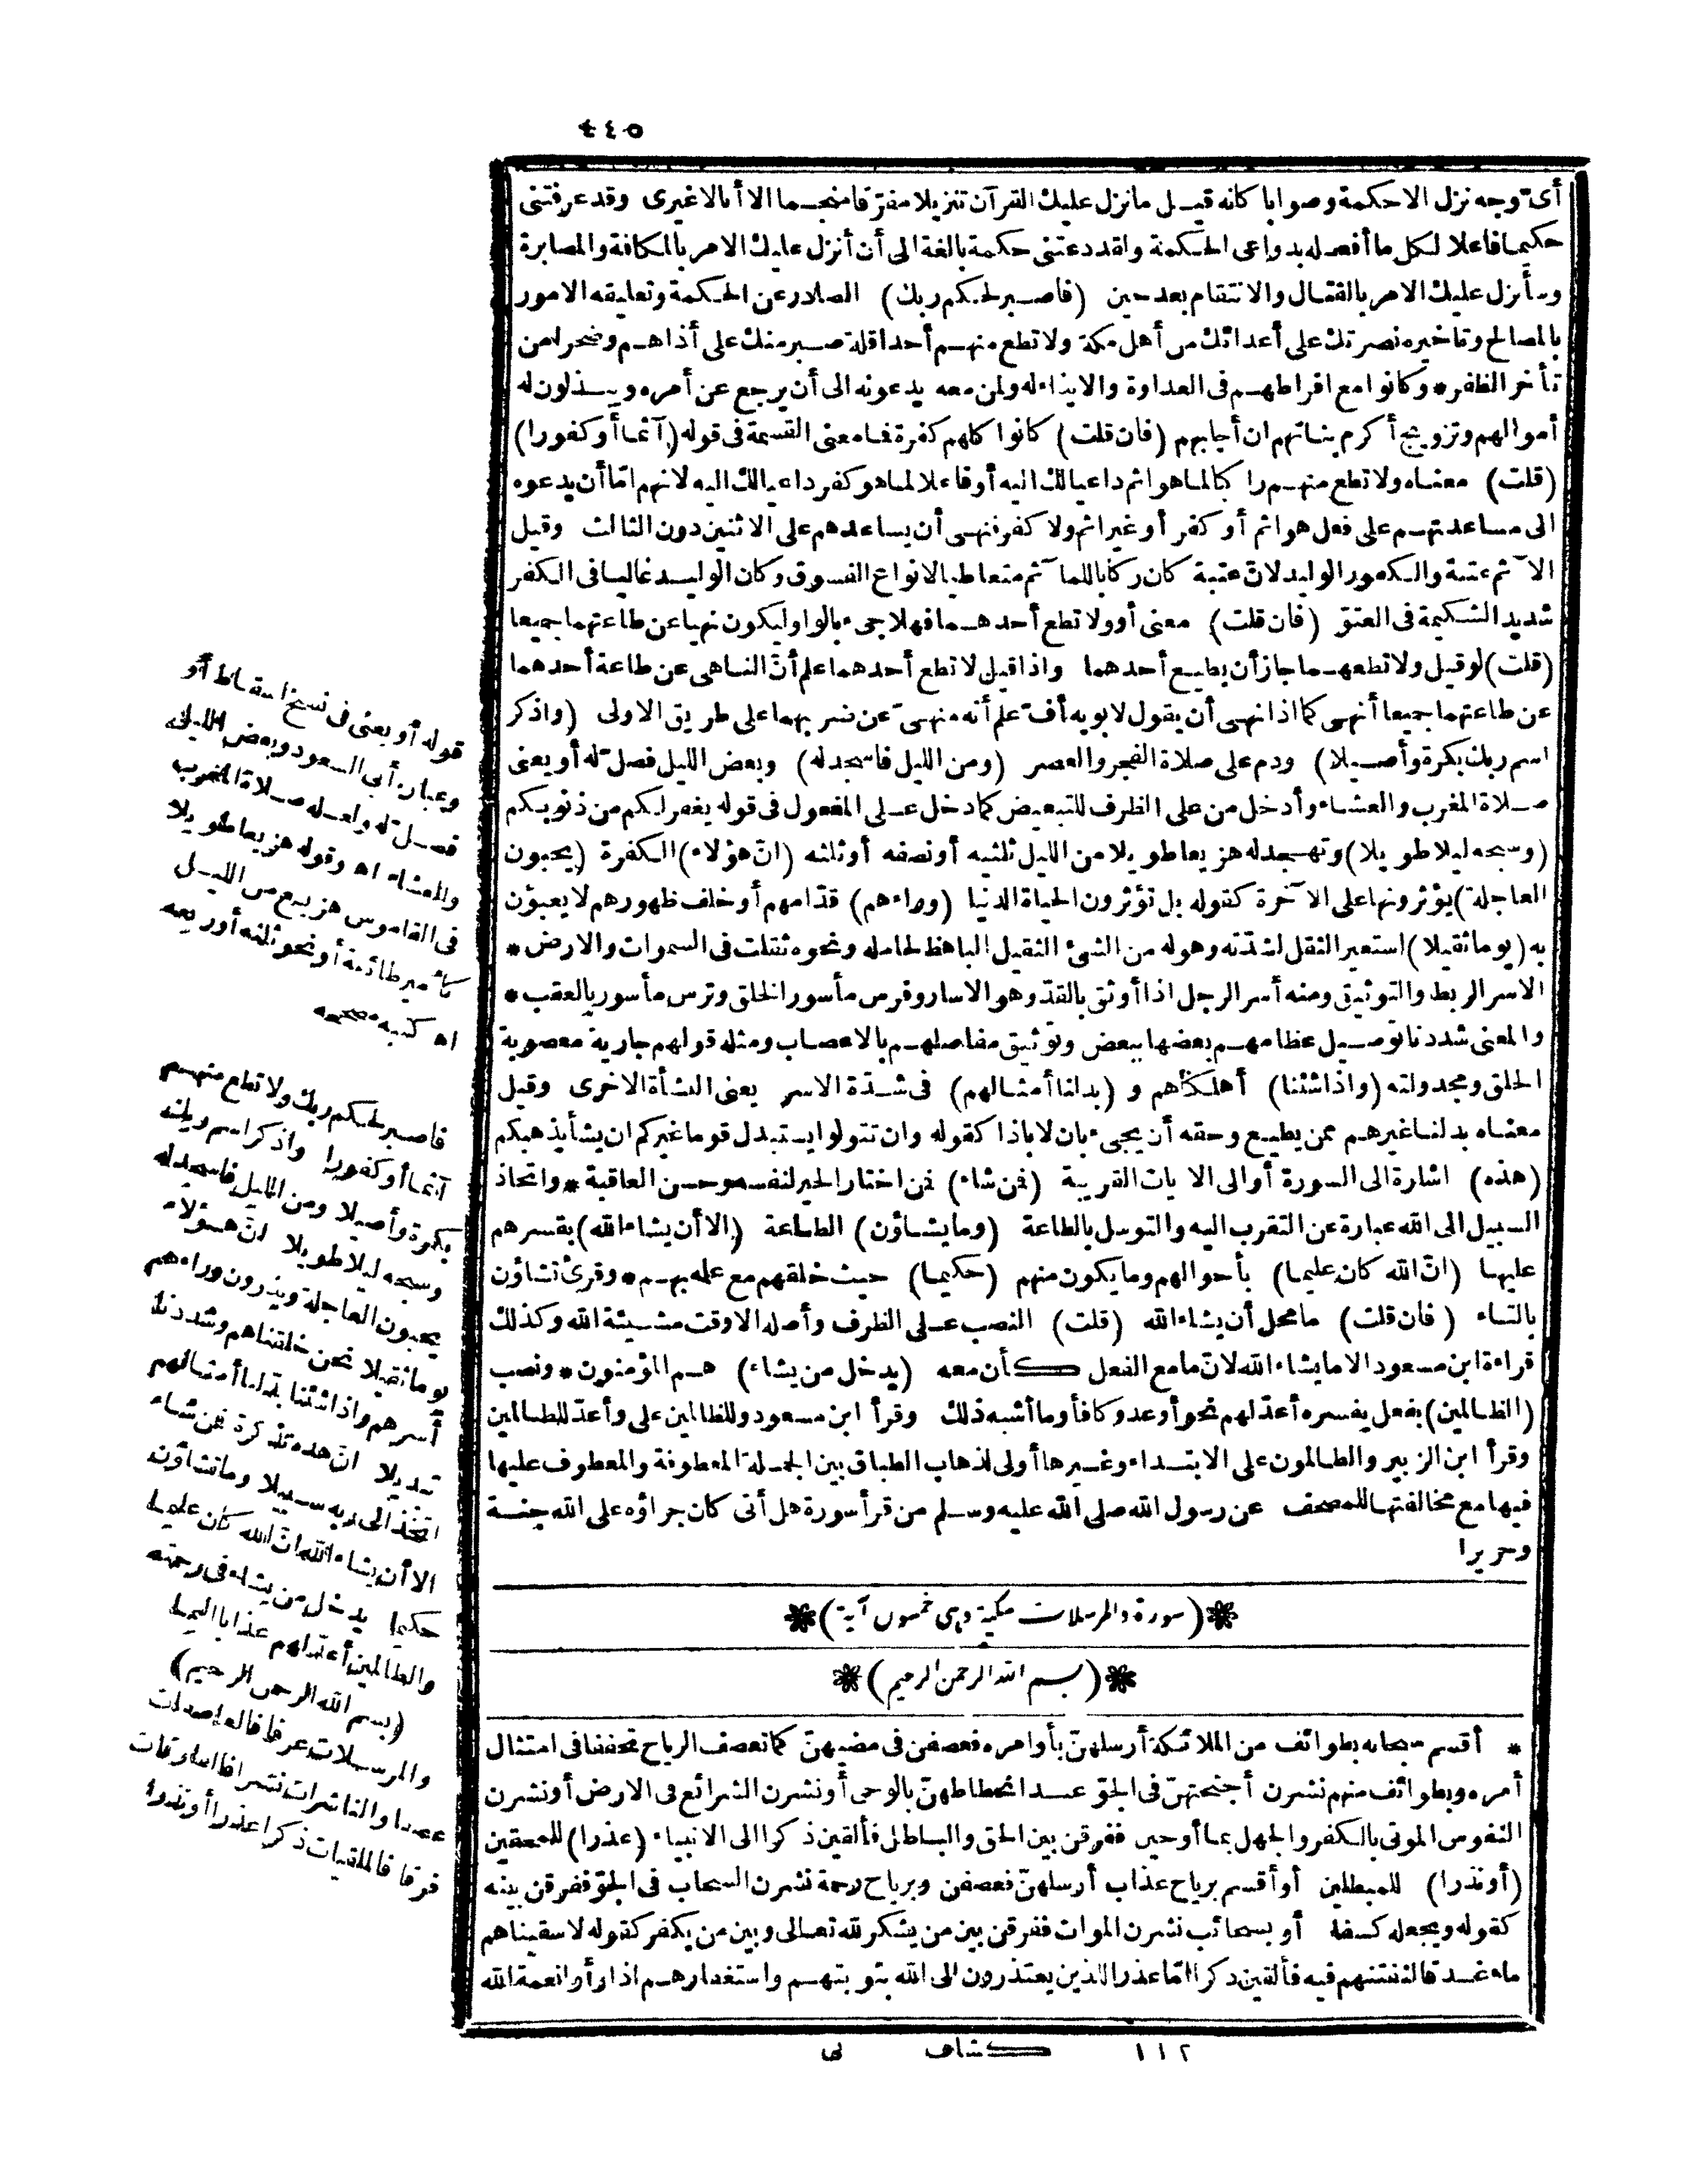 ٤٤٥
أى توجه نزل الا حكمة وصوابا كانه قيل ما نزل عليك القرآن تنزيلا مفرّقا منجما الا أنا لا غيرى وقد عرفتنى
حكيما فاعلا لكل ما أفعله بدواعى الحكمة ولقد دعتنى حكمة بالغة الى أن أنزل عليك الامر بالمكافة والمصابرة
وسأنزل عليك الامر بالقتال والانتقام بعد حين (فاصبر لحكم ربك) الصادر عن الحكمة وتعليقه الامور
بالمصالح وتأخيره نصرتك على أعدائك من أهل مكة ولا تطع منهم أحدا قلة صبر منك على أذاهم وضجرا من
تأخر الظفر * وكانوا مع افراطهم فى العداوة والايذاء له ولمن معه يدعونه الى أن يرجع عن أمره ويبذلون له
أموالهم وتزويج أكرم بناتهم ان أجابهم (فان قلت) كانوا كلهم كفرة فما معنى القسمة فى قوله (آثما أو كفورا)
(قلت) معناه ولا تطع منهم راكبا لما هو اثم داعيا لك اليه أو فاعلا لما هو كفر داعيا لك اليه لانهم امّا أن يدعوه
الى مساعدتهم على فعل هو اثم أو كفر أو غير اثم ولا كفر فنهى أن يساعدهم على الاثنين دون الثالث وقيل
الآثم عتبة والكفور الوليد لانّ عتبة كان ركابا للمآثم متعاطيا لانواع الفسوق وكان الوليد غاليا فى الكفر
شديد الشكيمة فى العتوّ (فان قلت) معنى أو ولا تطع أحدهما فهلا جىء بالواو ليكون نهيا عن طاعتهما جميعا
(قلت) لو قيل ولا تطعهما جاز أن يطيع أحدهما واذا قيل لا تطع أحدهما علم أنّ الناهى عن طاعة أحدهما
عن طاعتهما جميعا أنهى كما اذا نهى أن يقول لابويه أفّ علم أنه منهىّ عن ضربهما على طريق الاولى (واذكر
اسم ربك بكرة وأصيلا) ودم على صلاة الفجر والعصر (ومن الليل فاسجد له) وبعض الليل فصلّ له أو يعنى
صلاة المغرب والعشاء وأدخل من على الظرف للتبعيض كما دخل على المفعول فى قوله يغفر لكم من ذنوبكم
(وسبحه ليلا طويلا) وتهجد له هزيعا طويلا من الليل ثلثيه أو نصفه أو ثلثه (انّ هؤلاء) الكفرة (يحبون
العاجلة) يؤثرونها على الآخرة كقوله بل تؤثرون الحياة الدنيا (وراءهم) قدّامهم أو خلف ظهورهم لا يعبؤن
به (يوما ثقيلا) استعير الثقل لشدّته وهوله من الشئ الثقيل الباهظ لحامله ونحوه ثقلت فى السموات والارض *
الاسر الربط والتوثيق ومنه أسر الرجل اذا أوثق بالقدّ وهو الاسار وفرس مأسور الخلق وترس مأسور بالعقب *
والمعنى شددنا توصيل عظامهم بعضها ببعض وتوثيق مفاصلهم بالاعصاب ومثله قولهم جارية معصوبة
الخلق ومجدولته (واذا شئنا) أهلكناهم و (بدلنا أمثالهم) فى شدّة الاسر يعنى النشأة الاخرى وقيل
معناه بدلنا غيرهم ممن يطيع وحقه أن يجىء بان لا باذا كقوله وان تتولوا يستبدل قوما غيركم ان يشأ يذهبكم
(هذه) اشارة الى السورة أو الى الايات القريبة (فمن شاء) فمن اختار الخير لنفسه وحسن العاقبة * واتخاذ
السبيل الى الله عبارة عن التقرب اليه والتوسل بالطاعة (وما يشاؤن) الطاعة (الا أن يشاء الله) بقسرهم
عليها (انّ الله كان عليما) بأحوالهم وما يكون منهم (حكيما) حيث خلقهم مع علمه بهم * وقرئ تشاؤن
بالتاء (فان قلت) ما محل أن يشاء الله (قلت) النصب على الظرف وأصله الا وقت مشيئة الله وكذلك
قراءة ابن مسعود الا ما يشاء الله لانّ ما مع الفعل كأن معه (يدخل من يشاء) هم المؤمنون * ونصب
(الظالمين) بفعل يفسره أعدّ لهم نحو أوعد وكافأ وما أشبه ذلك وقرأ ابن مسعود وللظالمين على وأعدّ للظالمين
وقرأ ابن الزبير والظالمون على الابتداء وغيرها أولى لذهاب الطباق بين الجملة المعطوفة والمعطوف عليها
فيها مع مخالفتها للمصحف عن رسول الله صلى الله عليه وسلم من قرأ سورة هل أتى كان جزاؤه على الله جنة
وحريرا
(سورة والمرسلات مكية وهى خمسون آية)
(بسم الله الرحمن الرحيم)
* أقسم سبحانه بطوائف من الملائكة أرسلهنّ بأوامره فعصفن فى مضيهنّ كما تعصف الرياح تخففا فى امتثال
أمره وبطوائف منهم نشرن أجنحتهنّ فى الجوّ عند انحطاطهنّ بالوحى أو نشرن الشرائع فى الارض أو نشرن
النفوس الموتى بالكفر والجهل بما أوحين ففرقن بين الحق والباطل فألقين ذكرا الى الانبياء (عذرا) للمحقين
(أو نذرا) للمبطلين أو أقسم برياح عذاب أرسلهنّ فعصفن وبرياح رحمة نشرن السحاب فى الجوّ ففرقن بينه
كقوله ويجعله كسفا أو بسحائب نشرن الموات ففرقن بين من يشكر لله تعالى وبين من يكفر كقوله لاسقيناهم
ماء غدقا لنفتنهم فيه فألقين ذكرا امّا عذرا للذين يعتذرون الى الله بتوبتهم واستغفارهم اذا رأوا نعمة الله
قوله أو يعنى فى نسخ اسقاط أو
وعبارة أبى السعود وبعض الليل
فصلّ له ولعله صلاة المغرب
والعشاء اه وقوله هزيعا طويلا
فى القاموس هزيع من الليل
كأمير طائفة أو نحو ثلثه أو ربعه
اه كتبه مصححه
فاصبر لحكم ربك ولا تطع منهم
آثما أو كفورا واذكر اسم ربك
بكرة وأصيلا ومن الليل فاسجد له
وسبحه ليلا طويلا انّ هؤلاء
يحبون العاجلة ويذرون وراءهم
يوما ثقيلا نحن خلقناهم وشددنا
أسرهم واذا شئنا بدّلنا أمثالهم
تبديلا انّ هذه تذكرة فمن شاء
اتخذ الى ربه سبيلا وما تشاؤن
الا أن يشاء الله انّ الله كان عليما
حكيما يدخل من يشاء فى رحمته
والظالمين أعدّ لهم عذابا أليما
(بسم الله الرحمن الرحيم)
والمرسلات عرفا فالعاصفات
عصفا والناشرات نشرا فالفارقات
فرقا فالملقيات ذكرا عذرا أو نذرا
١١٢ كشاف نى